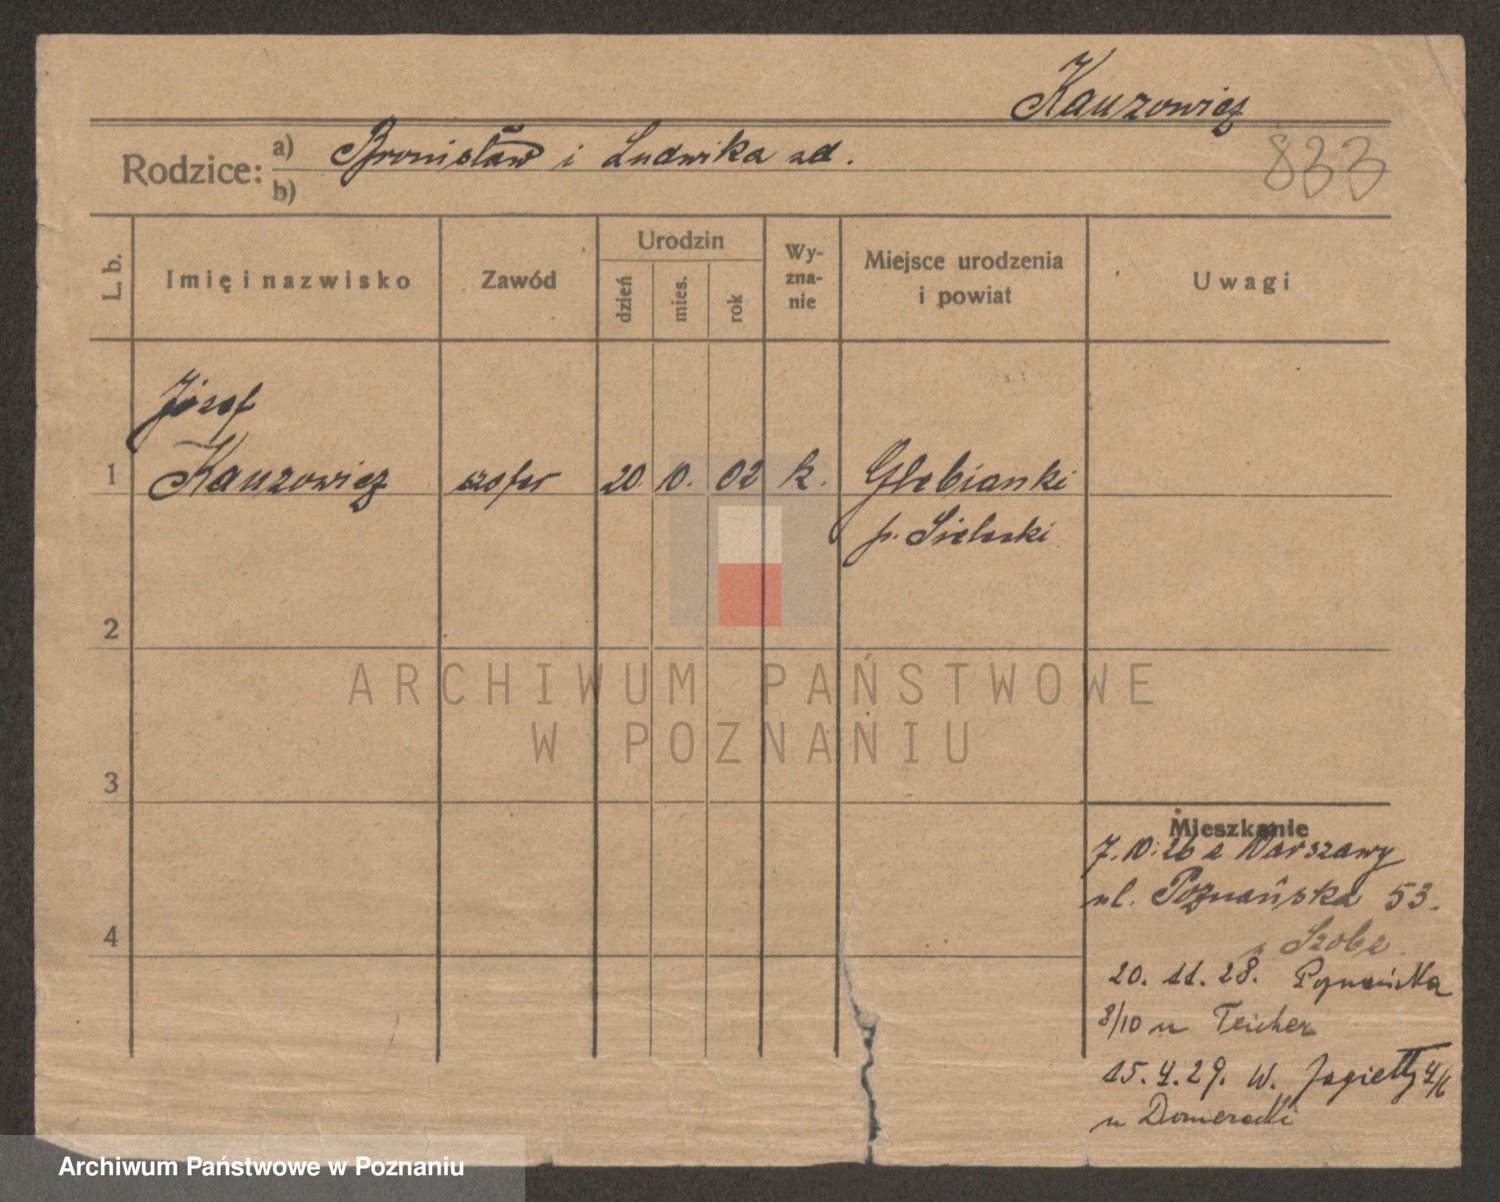 Kauzowicz
833
Rodzice:
a) Bronisław i Ludwika zd.
b)
L. b.
Imię i nazwisko
Zawód
Urodzin
dzień
mies.
rok
Wy-
zna-
nie
Miejsce urodzenia
i powiat
Uwagi
Józef
1 Kauzowicz szofer 20 10. 02 k. Głebianki
p. Sielecki
2
3
4
Mieszkanie
7.10.26 z Warszawy
ul. Poznańska 53.
Szobz
20. 11. 28. Poznańska
8/10 u Teicher
15. 4. 29. W. Jagiełły 4/6
u Domeracki
ARCHIWUM PAŃSTWOWE
W POZNANIU
Archiwum Państwowe w Poznaniu